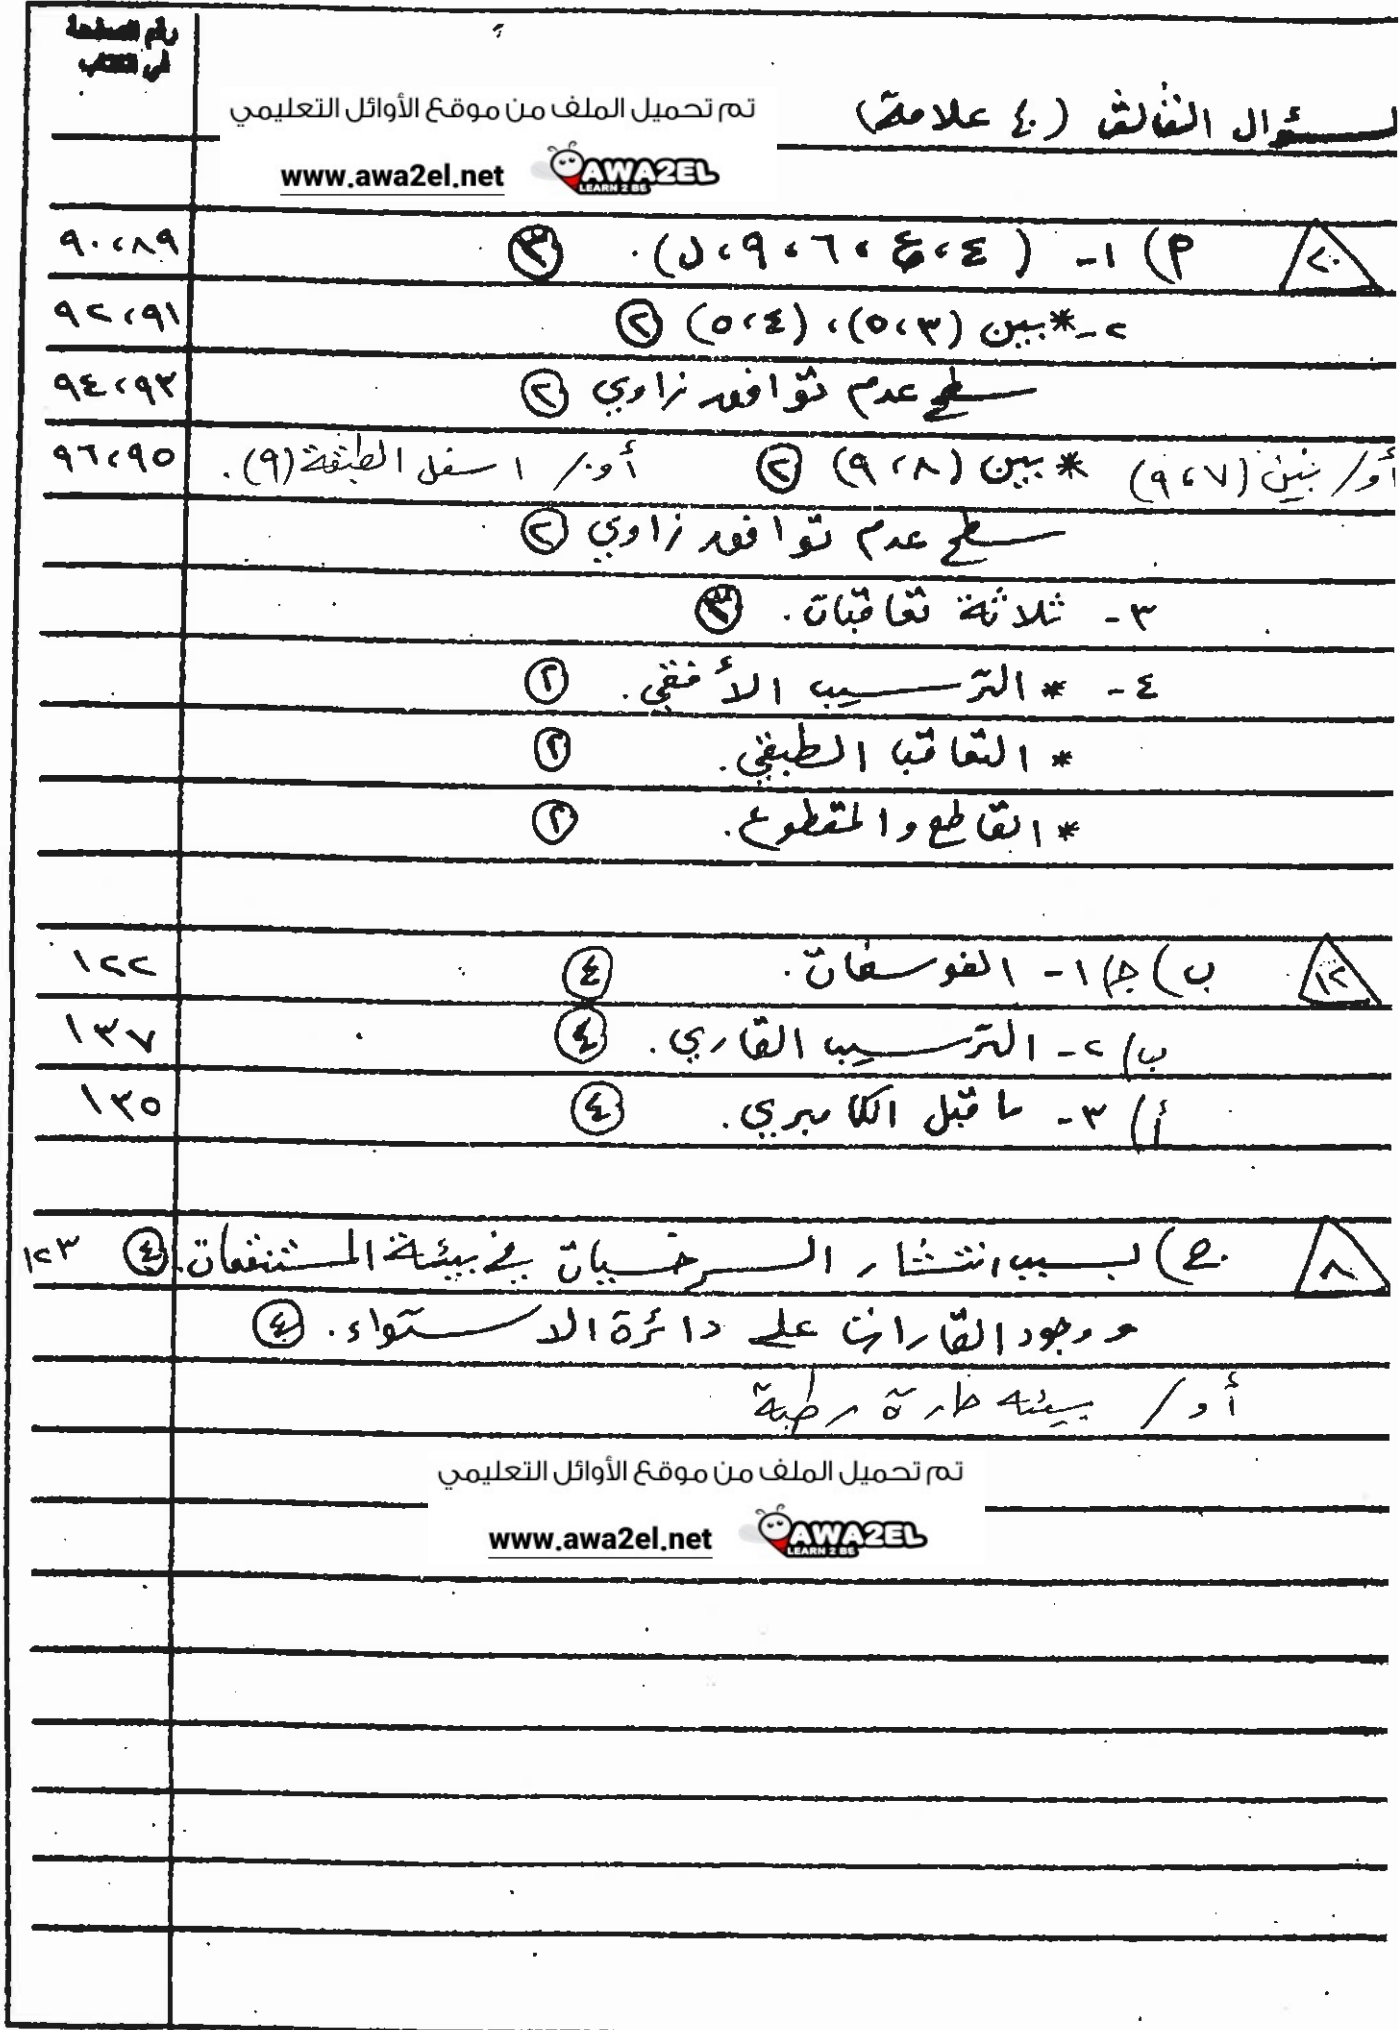 رقم الصفحة
في الكتاب
تم تحميل الملف من موقع الأوائل التعليمي
www.awa2el.net AWA2EL
LEARN 2 BE
سؤال الثالث (٤٠ علامة)
٢٠ م) ١- (٤، ع، ٦، ٩، ل). ٣ ٨٩، ٩٠
٢- * بين (٥،٣)، (٥،٤) ٢ ٩١، ٩٢
سطح عدم توافق زاوي ٢ ٩٣، ٩٤
أو/ بين (٩،٧) * بين (٩،٨) ٢ أو/ اسفل الطبقة (٩). ٩٥، ٩٦
سطح عدم توافق زاوي ٢
٣- ثلاثة تعاقبات. ٣
٤- * الترسيب الأفقي. ٢
* التعاقب الطبقي. ٢
* القاطع والمقطوع. ٢
١٢ ب) ج/ ١- الفوسفات. ٤ ١٢٢
ب/ ٢- الترسيب القاري. ٤ ١٣٧
أ/ ٣- ما قبل الكامبري. ٤ ١٣٥
٨ ج) لسبب انتشار السرخسيات في بيئة المستنقعات. ٤ ١٢٣
ووجود القارات على دائرة الاستواء. ٤
أو/ بيئة حارة رطبة
تم تحميل الملف من موقع الأوائل التعليمي
www.awa2el.net AWA2EL
LEARN 2 BE